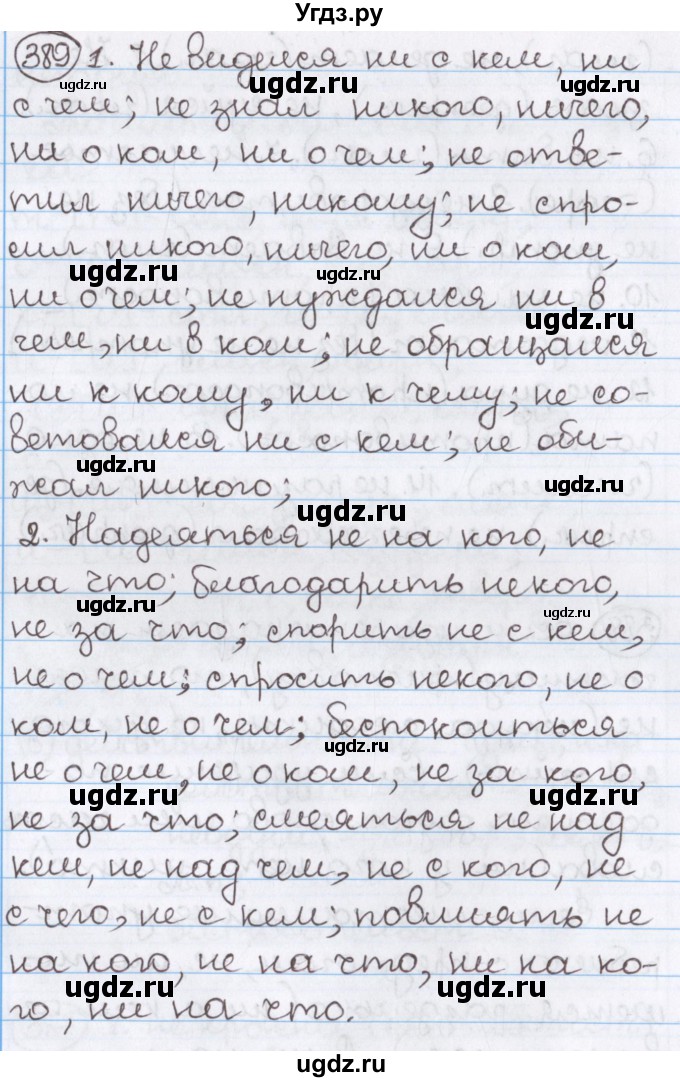 Угдз.ру
389 1. Не виделся ни с кем, ни
ugdz.ru ugdz.ru
с чем; не знал никого, ничего,
ни о ком, ни о чем; не отве-
ugdz.ru ugdz.ru
тил ничего, никому; не спро-
сил никого, ничего, ни о ком,
ugdz.ru ugdz.ru
ни о чем; не нуждался ни в
ugdz.ru
чем, ни в ком; не обращался
ugdz.ru
ни к кому, ни к чему; не со-
ugdz.ru
ветовался ни с кем; не оби-
ugdz.ru ugdz.ru
жал никого;
ugdz.ru
2. Надеяться не на кого, не
на что; благодарить некого,
ugdz.ru ugdz.ru
не за что; спорить не с кем,
не о чем; спросить некого, не о
ugdz.ru
ком, не о чем; беспокоиться
ugdz.ru
не о чем, не о ком, не за кого,
ugdz.ru ugdz.ru
не за что; смеяться не над
кем, не над чем, не с кого, не
ugdz.ru
с чего, не с кем, повлиять не
ugdz.ru
на кого, не на что, ни на ко-
ugdz.ru ugdz.ru
го, ни на что.
ugdz.ru